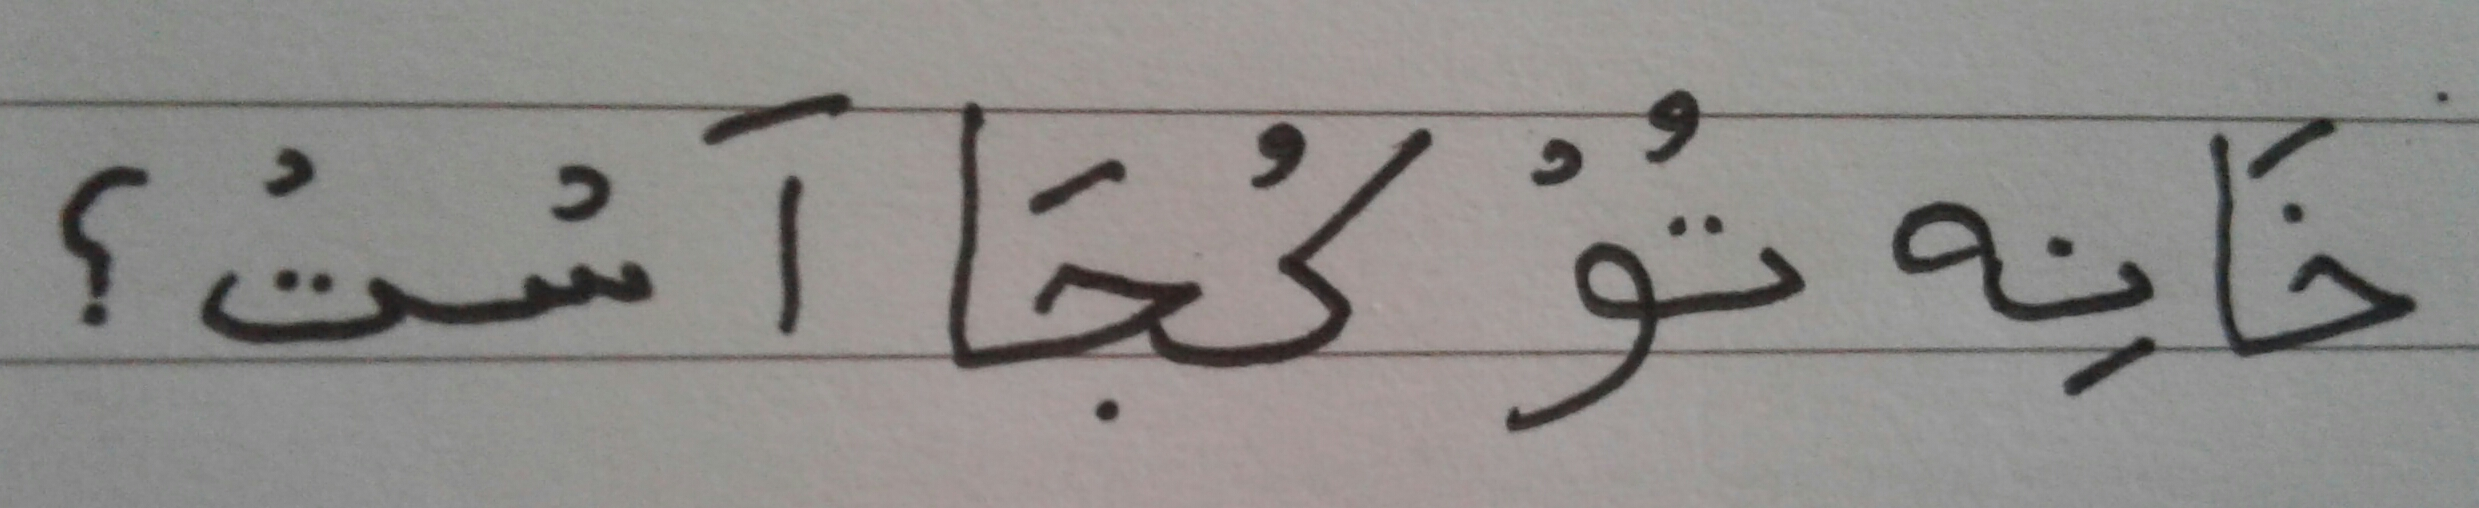 خَانِه تُوْ كُجَا اَسْتْ؟